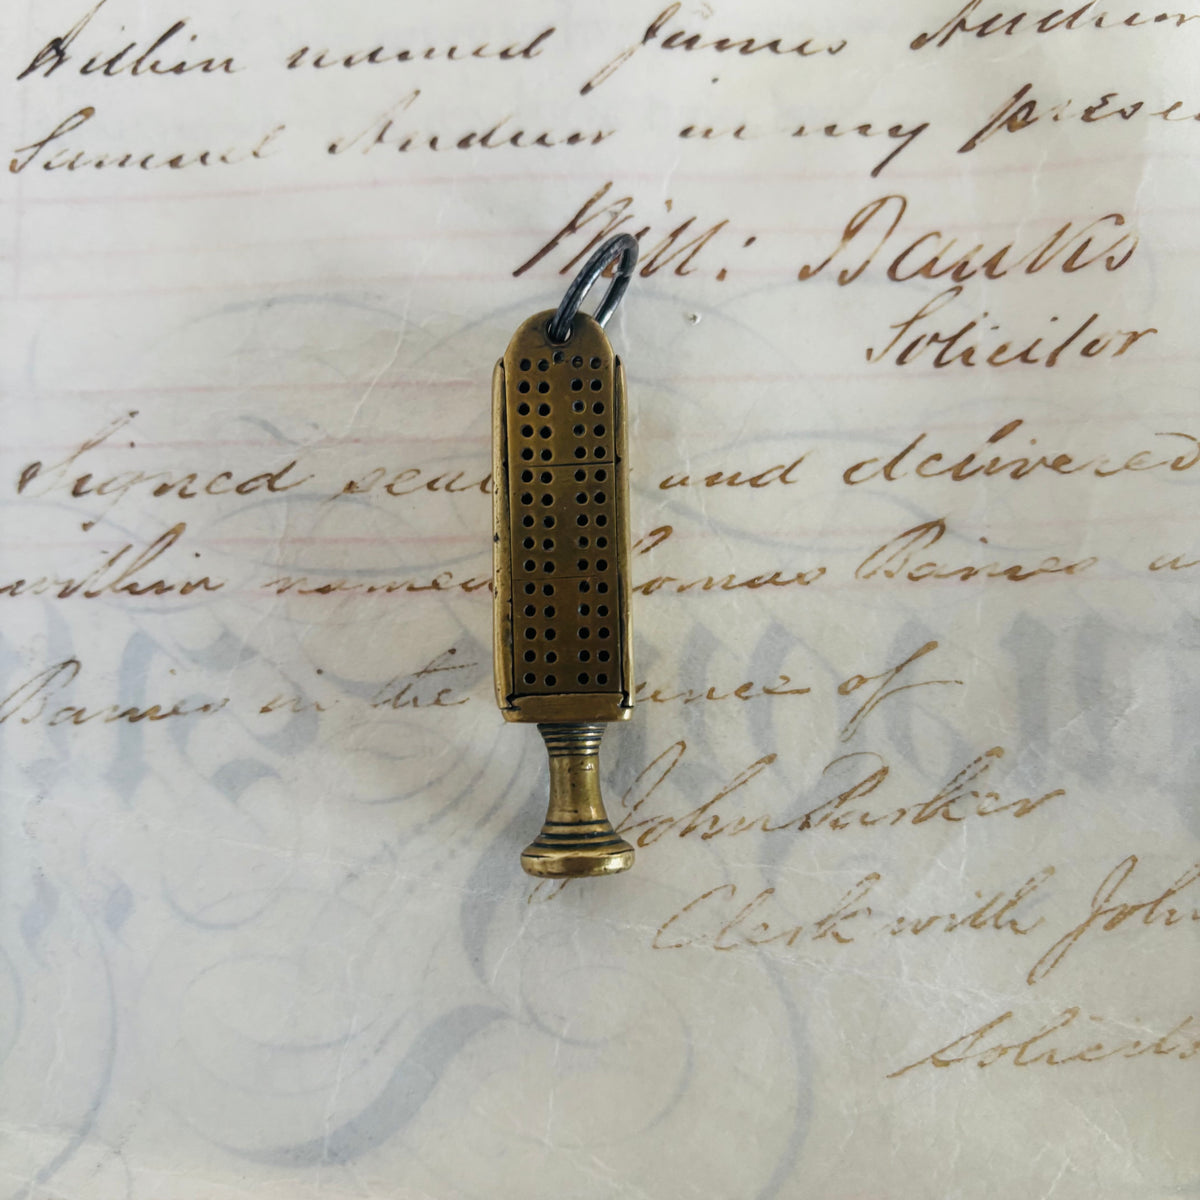 within named James Andrew
Samuel Andrew in my prese
Will: Banks
Solicitor
Signed seal and delivered
within named homas Baines
Baines in the ence of
John Parker
Clerk with John
Solicito